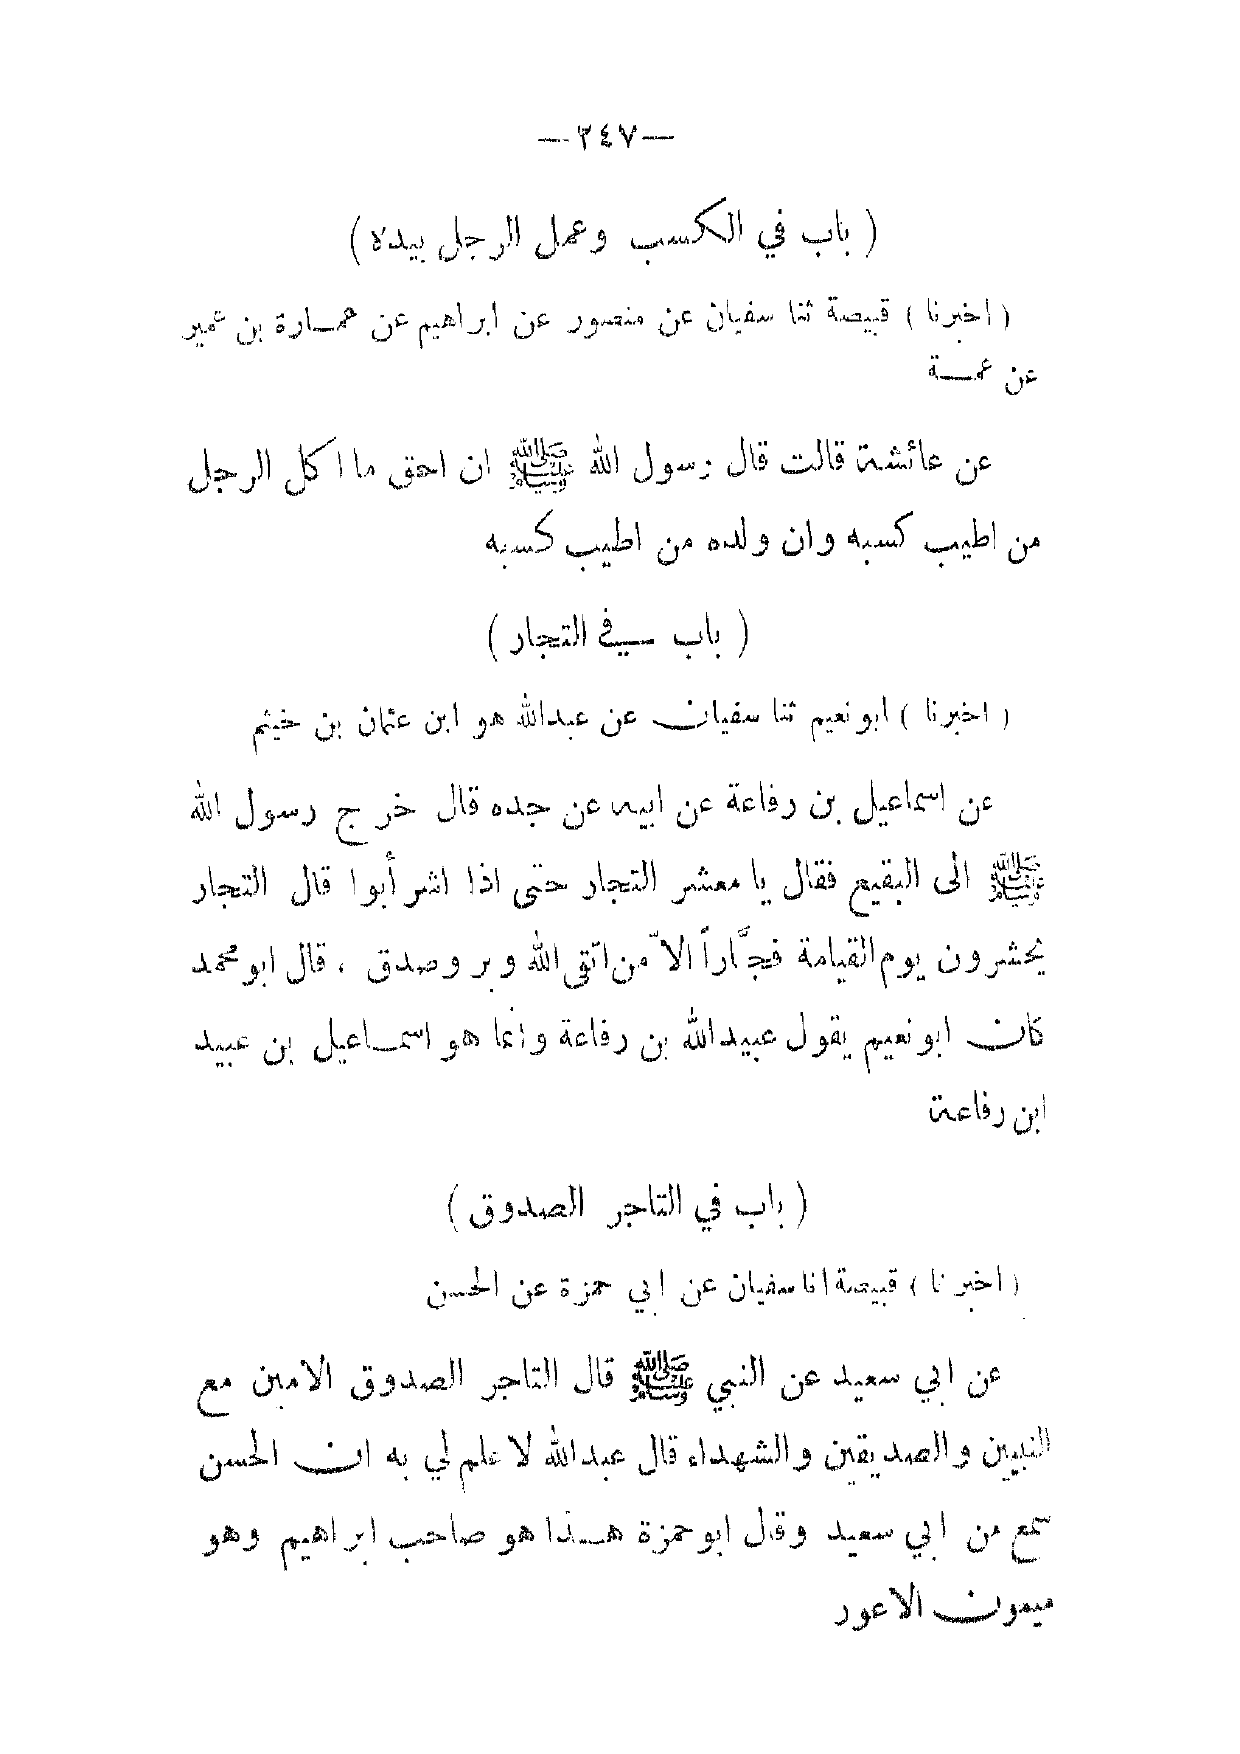 —٢٤٧—
( باب في الكسب وعمل الرجل بيده )
( اخبرنا ) قبيصة ثنا سفيان عن منصور عن ابراهيم عن عمـارة بن عمير
عن عمـــة
عن عائشة قالت قال رسول الله ﷺ ان احق ما اكل الرجل
من اطيب كسبه وان ولده من اطيب كسبه
( باب في التجار )
( اخبرنا ) ابو نعيم ثنا سفيان عن عبدالله هو ابن عثمان بن خيثم
عن اسماعيل بن رفاعة عن ابيه عن جده قال خرج رسول الله
ﷺ الى البقيع فقال يا معشر التجار حتى اذا اشرأَبوا قال التجار
يحشرون يوم القيامة فجَّاراً الاّ من اتّقى الله و بر وصدق ، قال ابو محمد
كان ابو نعيم يقول عبيدالله بن رفاعة وانما هو اسمـاعيل بن عبيد
ابن رفاعة
( باب في التاجر الصدوق )
( اخبرنا ) قبيصة انا سفيان عن ابي حمزة عن الحسن
عن ابي سعيد عن النبي ﷺ قال التاجر الصدوق الامين مع
النبيين والصديقين والشهداء قال عبدالله لا علم لي به ان الحسن
سمع من ابي سعيد وقال ابو حمزة هـذا هو صاحب ابراهيم وهو
ميمون الاعور